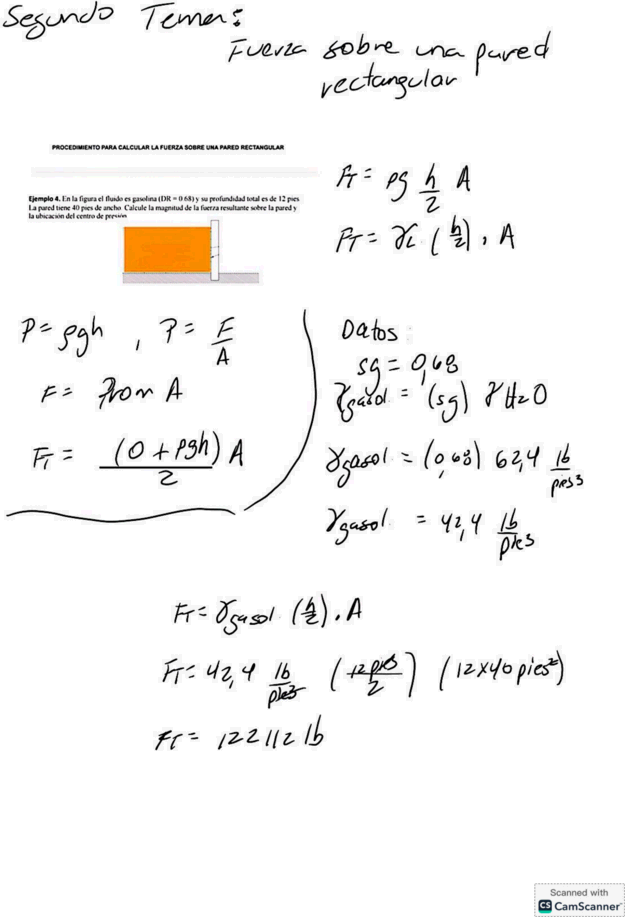 Segundo Tema:
Fuerza sobre una pared
rectangular
PROCEDIMIENTO PARA CALCULAR LA FUERZA SOBRE UNA PARED RECTANGULAR
Ejemplo 4. En la figura el fluido es gasolina (DR = 0.68) y su profundidad total es de 12 pies
La pared tiene 40 pies de ancho. Calcule la magnitud de la fuerza resultante sobre la pared y
la ubicación del centro de presión
FT = ρg h/2 A
FT = γL (h/2) . A
P = ρgh , P = F/A
F = Prom A
FT = (0 + ρgh)/2 A
Datos:
sg = 0,68
γgasol = (sg) γH2O
γgasol = (0,68) 62,4 lb/pies3
γgasol = 42,4 lb/pies
FT = γgasol (h/2) . A
FT = 42,4 lb/pies3 (12 pies/2) (12x40 pies²)
FT = 122112 lb
Scanned with
CS CamScanner